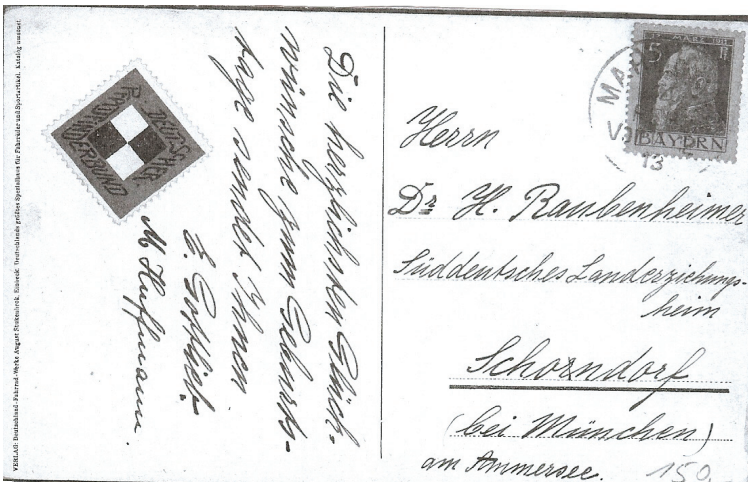 VERLAG: Deutschland-Fahrrad-Werke August Stukenbrok, Einbeck. Deutschlands grösstes Spezialhaus für Fahrräder und Sportartikel. Katalog umsonst.
DEUTSCHER
PFADFINDERBUND
Die herzlichsten Glück-
wünsche zum Geburts-
tage sendet Ihnen
E. Gottlieb.
M. Huffmann.
5 Pf
BAYERN
13
Herrn
Dr H. Raubenheimer
Süddeutsches Landerziehungs-
heim
Schorndorf
(bei München)
am Ammersee.
150.